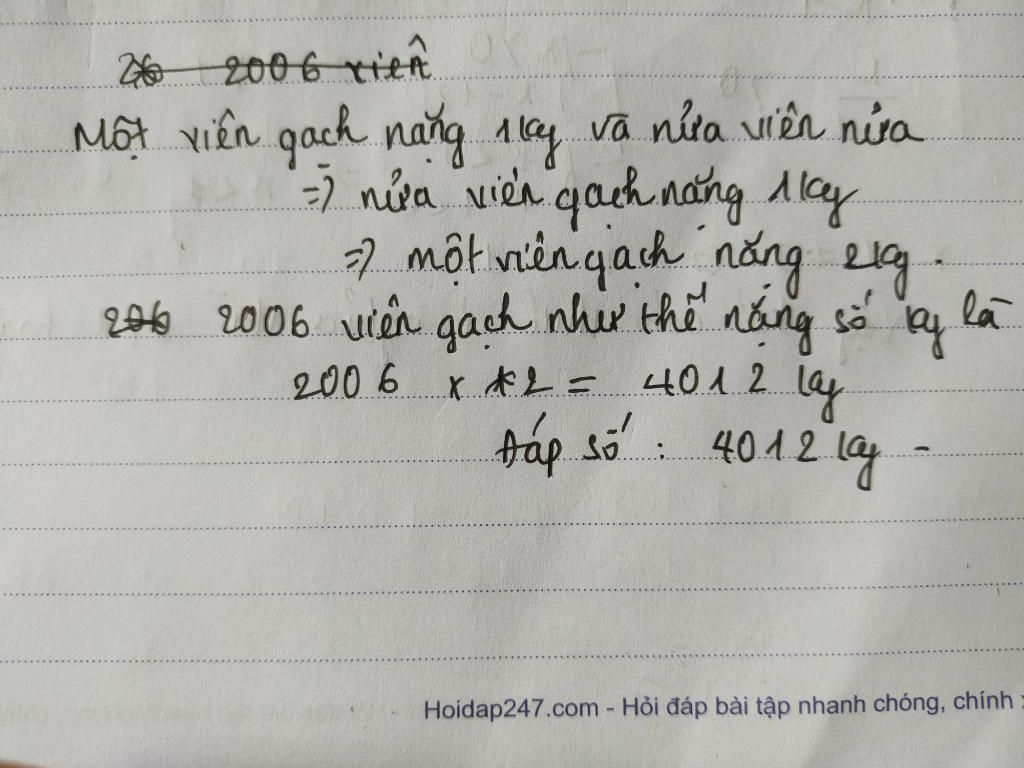 26 2006 viên
Một viên gạch nặng 1kg và nửa viên nửa
=> nửa viên gạch nặng 1kg
=> một viên gạch nặng 2kg.
206 2006 viên gạch như thế nặng số kg là
2006 x 2 = 4012 kg
Đáp số: 4012 kg -
Hoidap247.com - Hỏi đáp bài tập nhanh chóng, chính